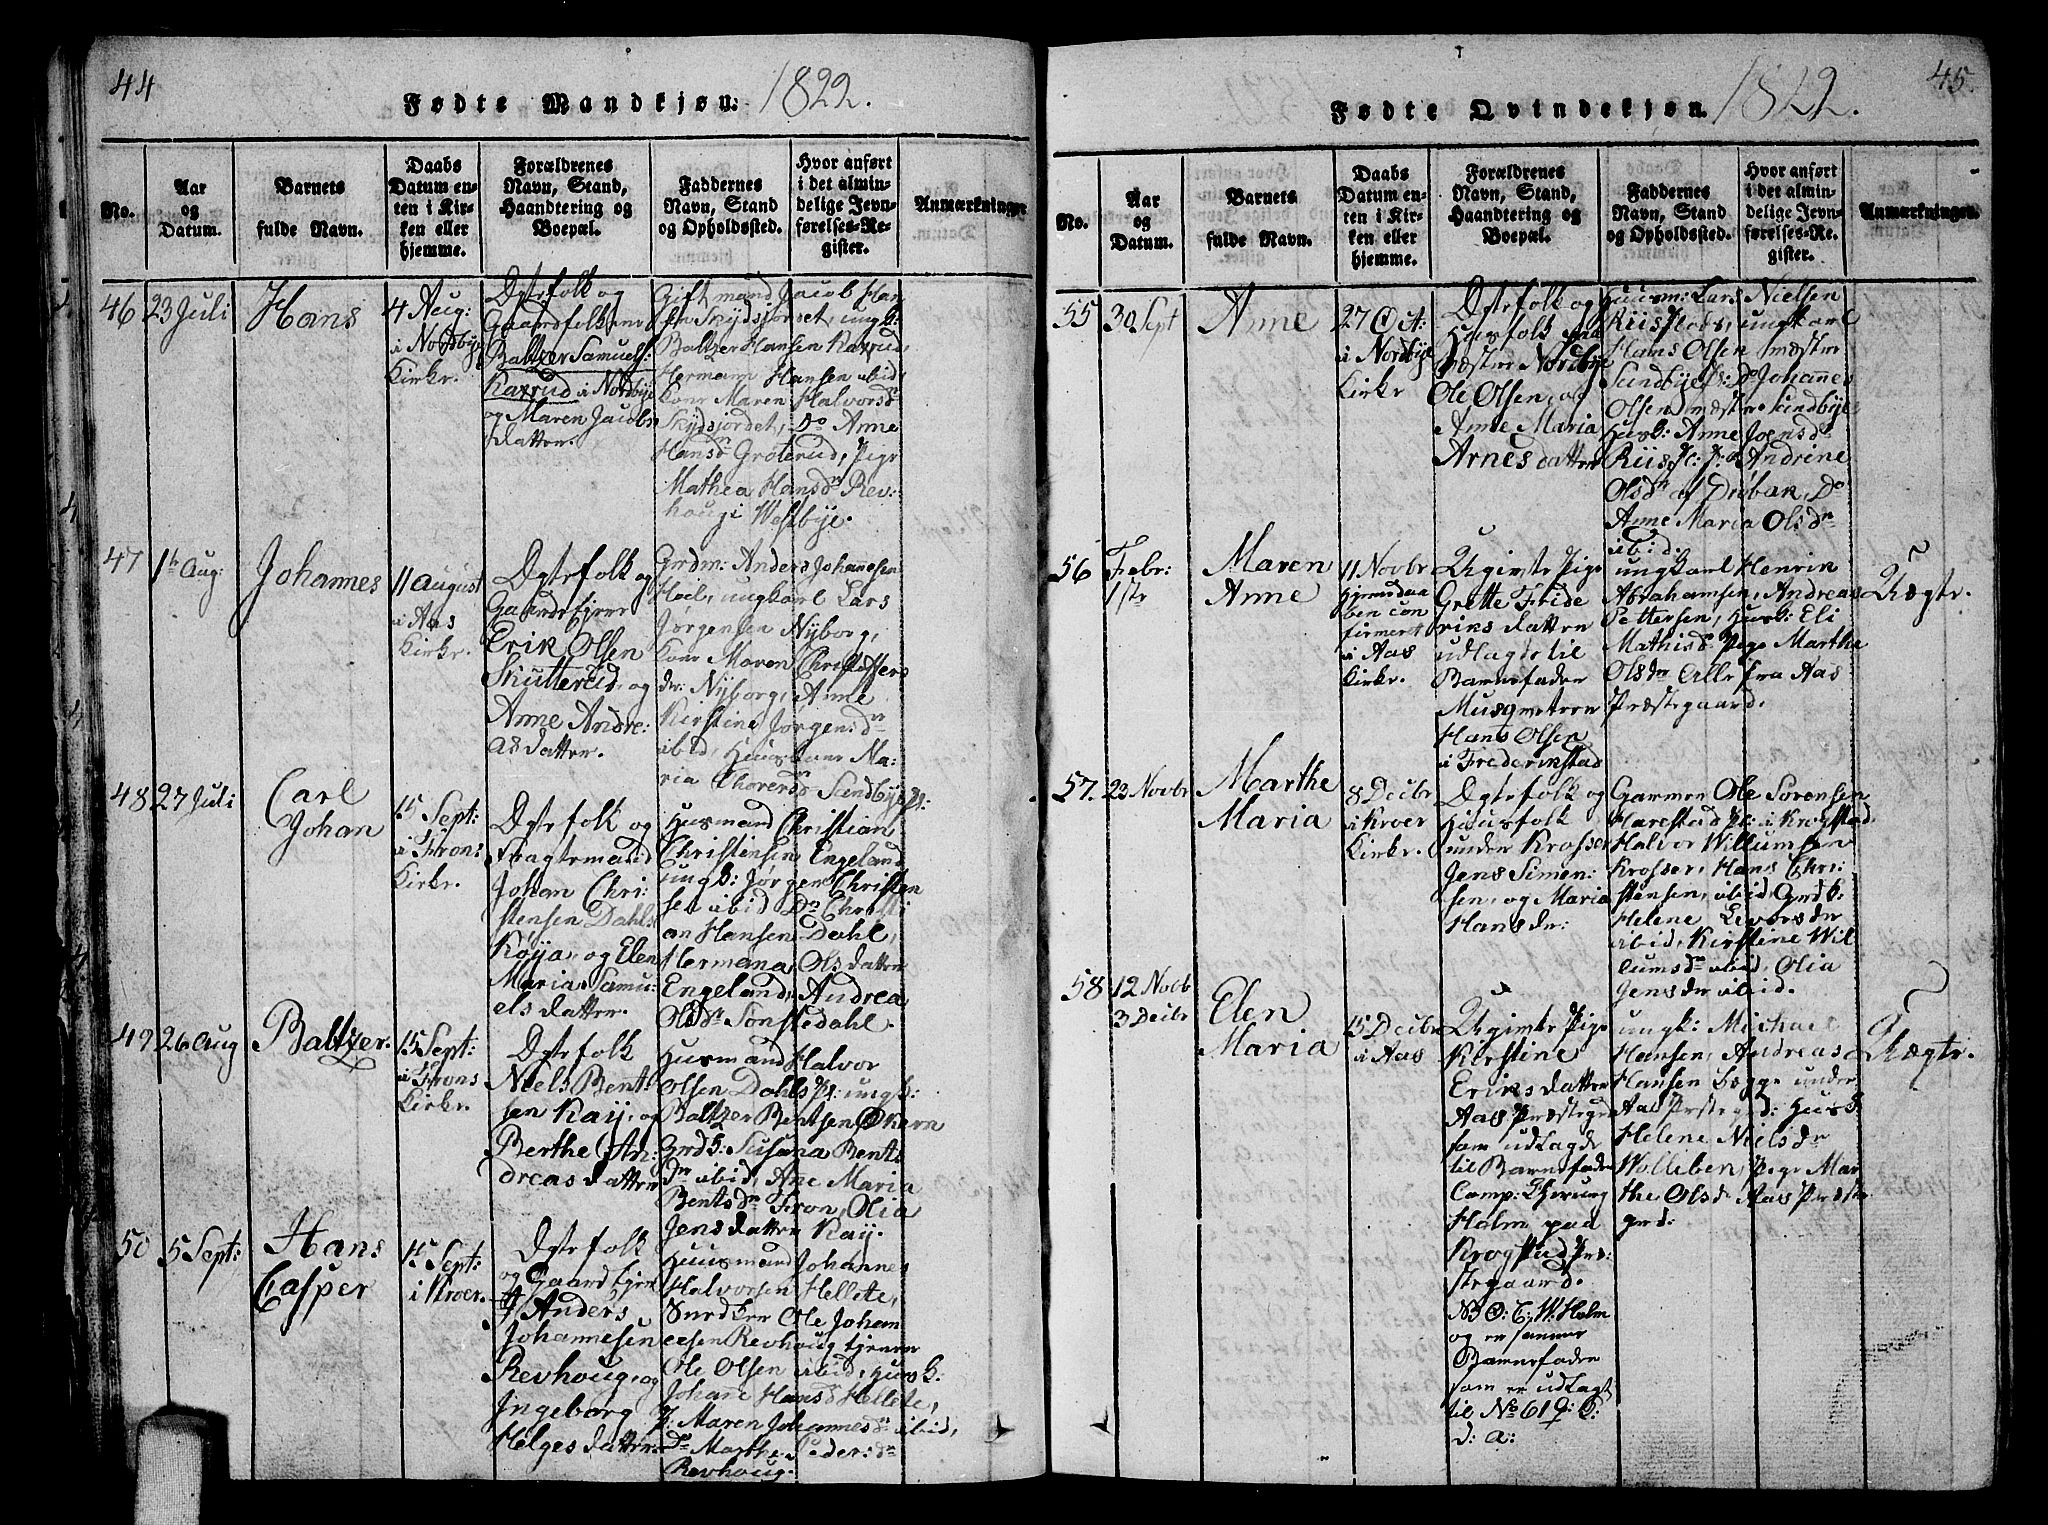 44
Fødte Mandkjøn. 1822.
No.
Aar og Datum.
Barnets fulde Navn.
Daabs Datum enten i Kirken eller hjemme.
Forældrenes Navn, Stand, Haandtering og Boepæl.
Faddernes Navn, Stand og Opholdssted.
Hvor anført i det almindelige Jevnførelses-Register.
Anmærkninger.
46 23 Juli
Hans
4 Aug:
i Nordbye
Kirke.
Dgtefolk og
Gaardfolk
Baltzer Samuels:
Kaxrud i Nordbye
og Maren Jacobs
datter.
Gift mand Jacob Han
sen Skydsjordet, ungk:
Baltzer Hansen Kaxrud,
Hermann Hansen ibid,
Kone Maren Halvorsd
Skydsjordet, Do Anne
Hansdn Grøterud, Pige
Mathea Hansdn Rev:
houg i Westbye.
47 1te Aug:
Johannes
11 August
i Aas
Kirke.
Dgtefolk og
Erik Olsen
Skutterud, og
Anne Andre:
asdatter.
Grdm: Anders Johanesen
Holt, ungkarl Lars
Jørgensen Nyborg,
Kone Maren Christoffers
dr: Nyborg, Anne
Kirstine Jørgensdn
ibid, Huuskone Ma:
ria Thoresd Sundbye Pl:
48 27 Juli
Carl
Johan
15 Sept:
i Frons
Kirke.
Dgtefolk og
Fragtemand
Johan Chri:
stensen Dahls
Køya, og Elen
Maria Samu:
elsdatter.
Husmand Christian
Christensen Engeland
ungk: Jørgen Christen
sen ibid Do Christi
an Hansen Dahl,
Hermana Olsdatter
Engeland, Andrea
Olsdn Sønstedahl.
49 26 Aug
Baltzer.
15 Sept:
i Frons
Kirke.
Dgtefolk
Niels Bent:
sen Kay, og
Berthe An:
dreasdatter
Husmand Halvor
Olsen Dahls Pl: ungk:
Baltzer Bentsen Økern
Grdk: Susana Bents
dn ibid, Ane Maria
Bentsdn Fron, Olia
Jensdatter Kay.
50 5 Sept:
Hans
Casper
15 Sept:
i Kroer.
Dgtefolk
og Gaardbrugere
Anders
Johannesen
Revhoug, og
Ingeborg
Helgesdatter
Huusmand Johannes
Halvorsen Hellete,
Snedker Ole Johan
nesen Revhoug tjener
Ole Olsen ibid, Husk:
Johane Hansd Hellete,
P: Maren Johannesdn ibid,
Do Marthe Pedersdn
Revhoug.
45.
Fødte Qvindekjøn. 1822.
No.
Aar og Datum.
Barnets fulde Navn.
Daabs Datum enten i Kirken eller hjemme.
Forældrenes Navn, Stand, Haandtering og Boepæl.
Faddernes Navn, Stand og Opholdssted.
Hvor anført i det almindelige Jevnførelses-Register.
Anmærkninger.
55 30 Sept
Anne
27 Oct:
i Nordbye
Kirke
Dgtefolk og
Husfolk paa
Næstre Nordbye
Ole Olsen, og
Anne Maria
Arnesdatter
Huusm: Lars Nielsen
Riis Plads, ungkarl
Hans Olsen næstre
Sundbye Pl: Do Johannes
Olsen næstre Sundbye
Husk: Anne Joensdr
Riis Pl: P: Andrine
Olsdn af Drøbak, Do
Anne Maria Olsdn
ibid.
56 Febr:
1ste
Maren
Anne
11 Novbr
Hjemdaa
ben con
firmeret
i Aas
Kirke.
Ugivte Pige
Grette Fride
riksdatter
udlagde til
Barnefader
Musqueteer
Hans Olsen
i Frederikstad
ungkarl Henrik
Abrahamsen, Andreas
Pettersen, Husk: Eli
Mathisd Pige Marthe
Olsdr Alle fra Aas
Præstegaard.
Uægte.
57. 23 Novbr
Marthe
Maria
8 Decbr
i Kroer
Kirke.
Dgtefolk og
Huusfolk
under Krosser
Jens Simen:
sen, og Maria
Hansdr:
Garmer Ole Sørensen
Harestad Pl: i Krogstad.
Halvor Willumsen
Krosser, Hans Chri:
stensen, ibid, Grdk:
Helene Sivorsdr
ibid, Kirstine Wil
lumsdn ibid, Olia
Jensdr ibid.
58 12 Novb
3 Decbr
Elen
Maria
15 Decbr
i Aas
Ugivte Pige
Kirstine
Eriksdatter
Aas Præstegrd
som udlagde
til Barnefader
Camp: Chirurg
Holm paa
Krogstad Præ:
stegaard.
NB O: C: W: Holm
og er samme
Barnefader
som er udlagt
til No 61 Q: K:
d: a:
ungk: Michael
Hansen, Andreas
Hansen begge under
Aas Præstegd: Husk:
Helene Nielsdr
Wollben, Pige Mar
the Olsd Aas Præste
grd:
Uægte.